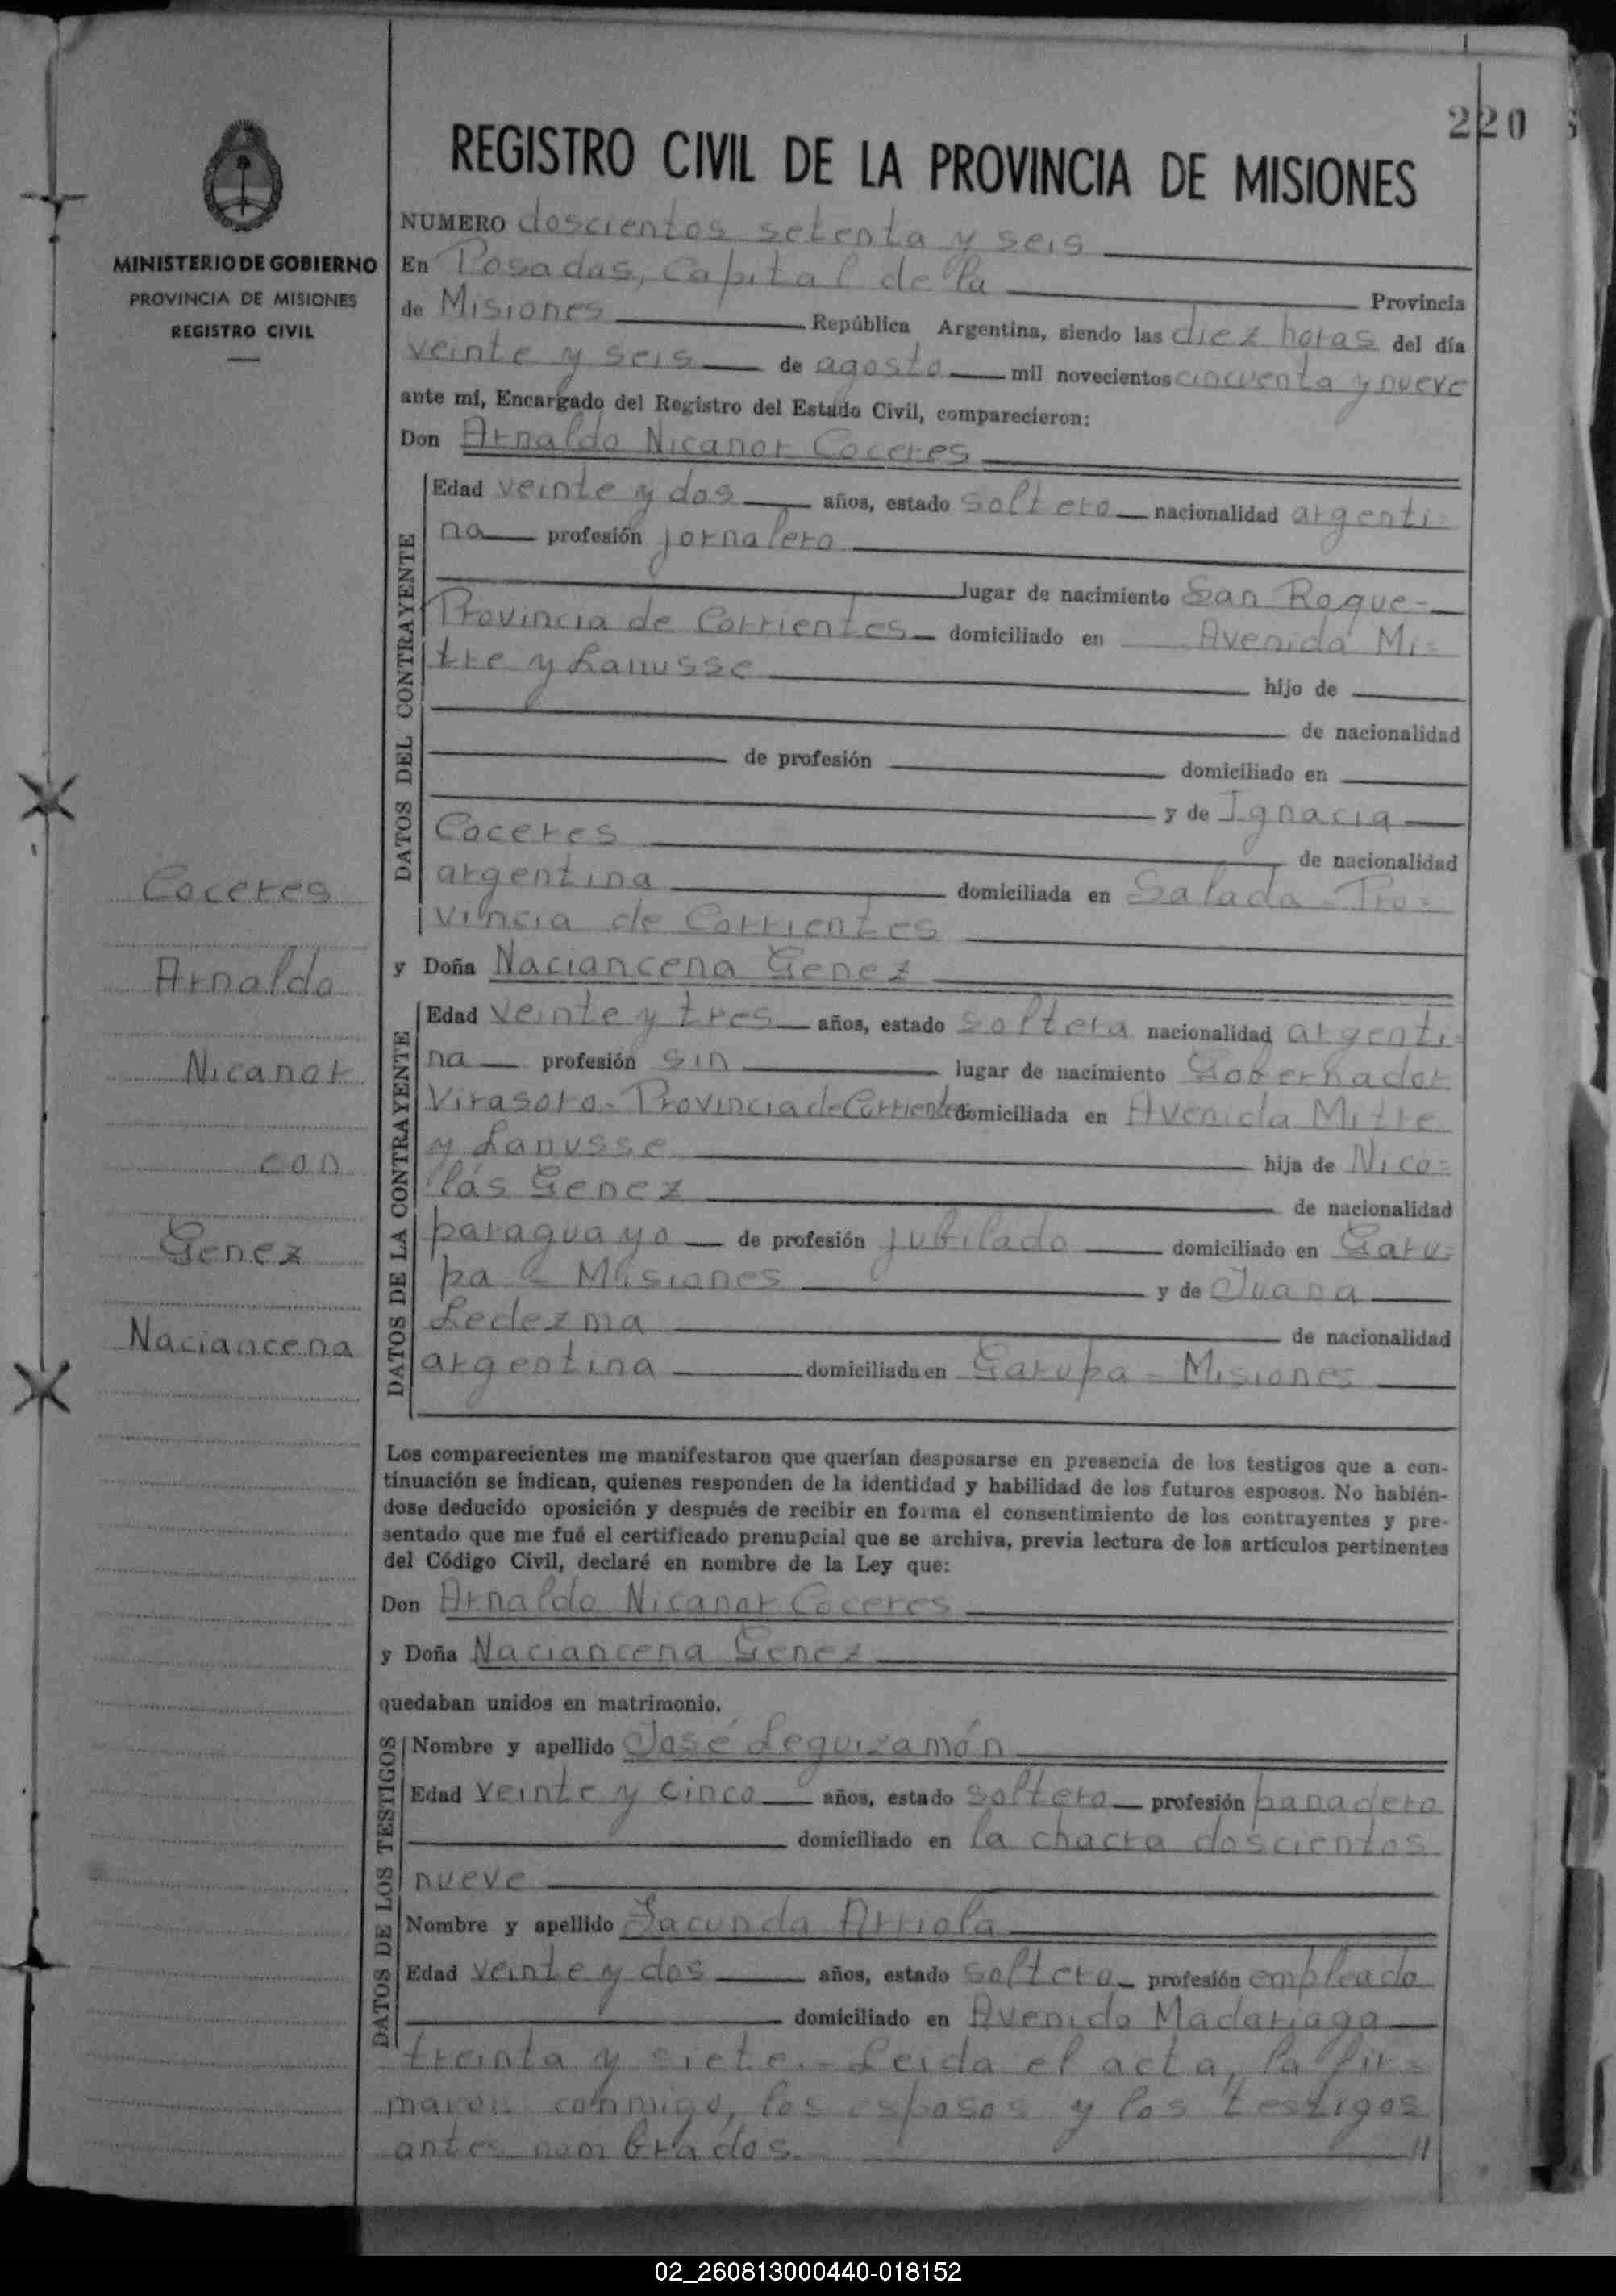 220
REGISTRO CIVIL DE LA PROVINCIA DE MISIONES
MINISTERIO DE GOBIERNO
PROVINCIA DE MISIONES
REGISTRO CIVIL
NUMERO doscientos setenta y seis
En Posadas, Capital de la Provincia
de Misiones República Argentina, siendo las diez horas del día
veinte y seis de agosto mil novecientos cincuenta y nueve
ante mí, Encargado del Registro del Estado Civil, comparecieron:
Don Arnaldo Nicanor Coceres
DATOS DEL CONTRAYENTE
Edad veinte y dos años, estado soltero nacionalidad argenti=
na profesión jornalero
lugar de nacimiento San Roque-
Provincia de Corrientes domiciliado en Avenida Mi=
tre y Lanusse hijo de
de nacionalidad
de profesión domiciliado en
y de Ignacia
Coceres de nacionalidad
argentina domiciliada en Salada - Pro=
vincia de Corrientes
y Doña Naciancena Genez
DATOS DE LA CONTRAYENTE
Edad veinte y tres años, estado soltera nacionalidad argenti=
na profesión sin lugar de nacimiento Gobernador
Virasoro - Provincia de Corrientes domiciliada en Avenida Mitre
y Lanusse hija de Nico=
lás Genez de nacionalidad
paraguayo de profesión jubilado domiciliado en Garu=
pa - Misiones y de Juana
Ledezma de nacionalidad
argentina domiciliada en Garupa - Misiones
Coceres
Arnaldo
Nicanor
con
Genez
Naciancena
Los comparecientes me manifestaron que querían desposarse en presencia de los testigos que a con-
tinuación se indican, quienes responden de la identidad y habilidad de los futuros esposos. No habién-
dose deducido oposición y después de recibir en forma el consentimiento de los contrayentes y pre-
sentado que me fué el certificado prenupcial que se archiva, previa lectura de los artículos pertinentes
del Código Civil, declaré en nombre de la Ley que:
Don Arnaldo Nicanor Coceres
y Doña Naciancena Genez
quedaban unidos en matrimonio.
DATOS DE LOS TESTIGOS
Nombre y apellido José Leguizamón
Edad veinte y cinco años, estado soltero profesión panadero
domiciliado en la chacra doscientos
nueve
Nombre y apellido Facundo Arriola
Edad veinte y dos años, estado soltero profesión empleado
domiciliado en Avenida Madariaga
treinta y siete.- Leida el acta, la fir=
maron conmigo, los esposos y los testigos
antes nombrados. //
02_260813000440-018152